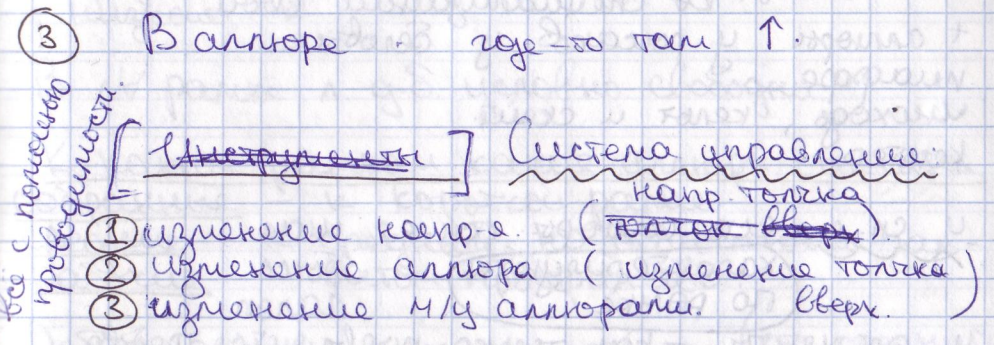 ③ В аллюре . где-то там ↑.
всё с помощью
проводимости.
[Инструменты] Система управления.
напр. толчка
① изменение напр-я. (толчок вверх).
② изменение аллюра (изменение толчка
③ изменение м/у аллюрами. вверх.)